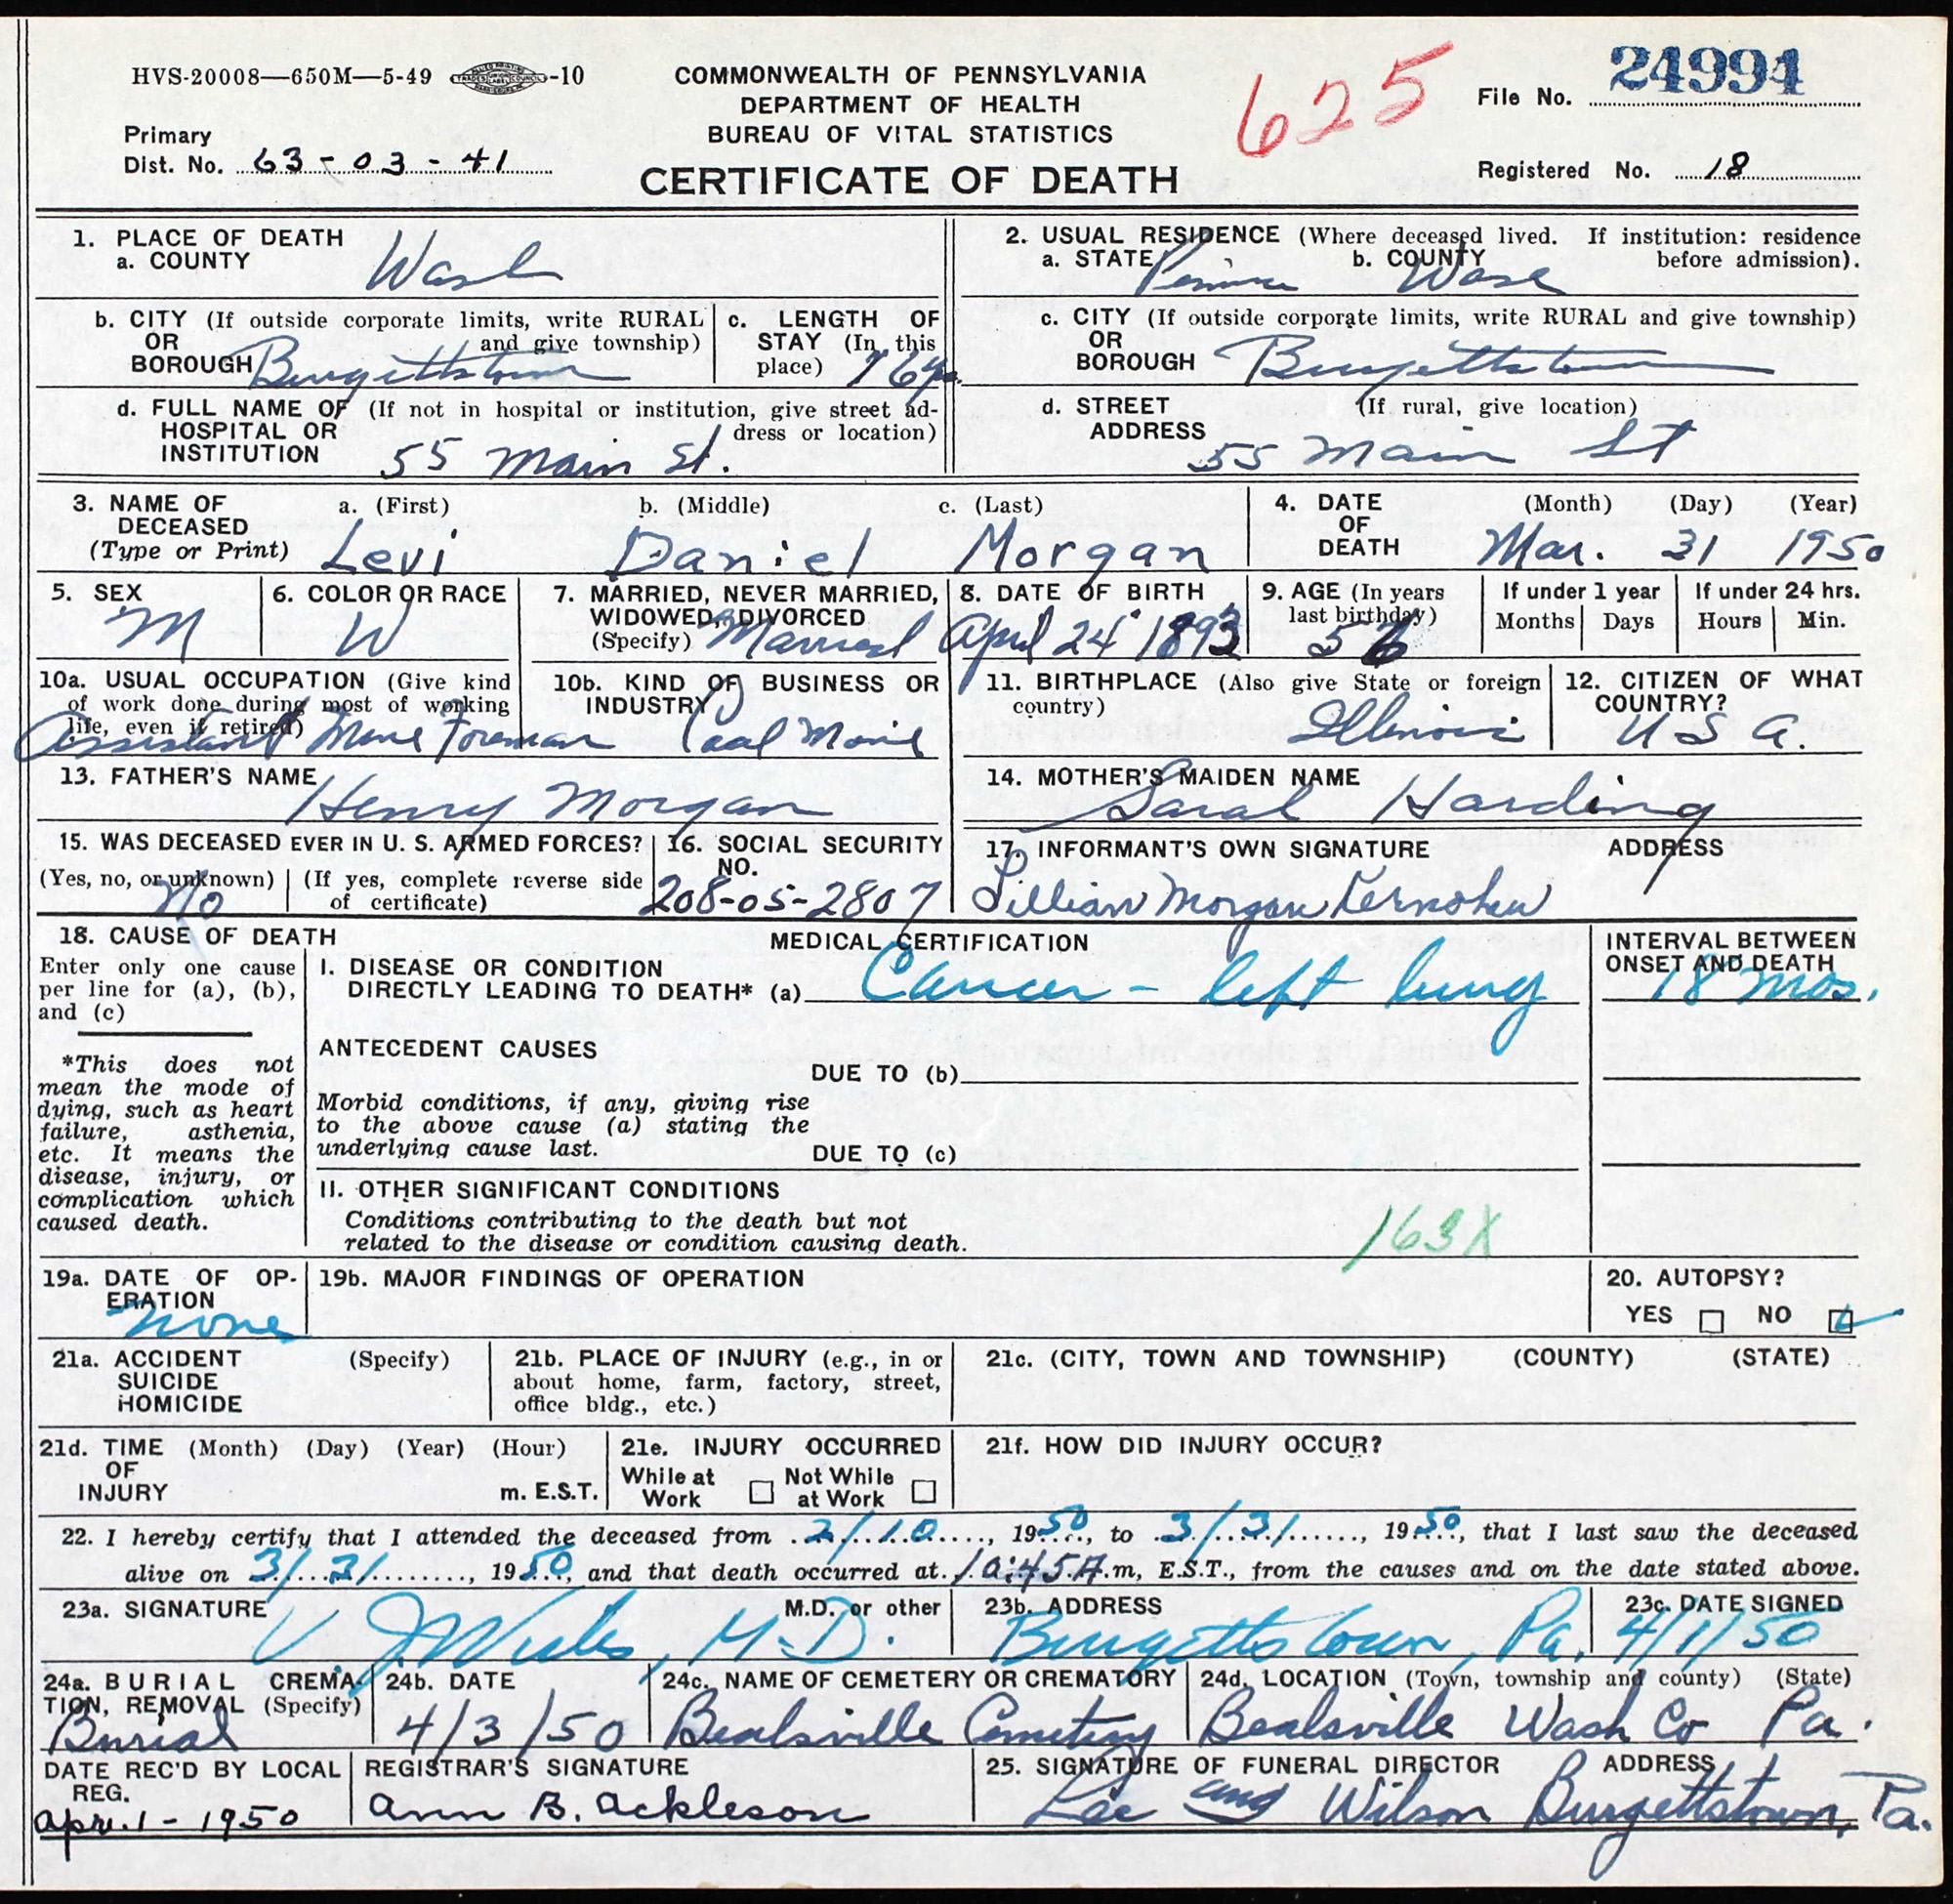 HVS-20008—650M—5-49 -10
COMMONWEALTH OF PENNSYLVANIA
DEPARTMENT OF HEALTH
BUREAU OF VITAL STATISTICS
CERTIFICATE OF DEATH
625
File No. 24994
Primary
Dist. No. 63-03-41
Registered No. 18
1. PLACE OF DEATH
a. COUNTY Wash
2. USUAL RESIDENCE (Where deceased lived. If institution: residence before admission).
a. STATE Penna b. COUNTY Wash
b. CITY (If outside corporate limits, write RURAL and give township)
OR
BOROUGH Burgettstown
c. LENGTH OF STAY (In this place)
c. CITY (If outside corporate limits, write RURAL and give township)
OR
BOROUGH Burgettstown
d. FULL NAME OF (If not in hospital or institution, give street address or location)
HOSPITAL OR
INSTITUTION 55 Main St.
d. STREET (If rural, give location)
ADDRESS 55 Main St
3. NAME OF DECEASED
(Type or Print)
a. (First) b. (Middle) c. (Last)
Levi Daniel Morgan
4. DATE OF DEATH
(Month) (Day) (Year)
Mar. 31 1950
5. SEX
M
6. COLOR OR RACE
W
7. MARRIED, NEVER MARRIED, WIDOWED, DIVORCED
(Specify) Married
8. DATE OF BIRTH
April 24 1893
9. AGE (In years last birthday)
56
If under 1 year
Months Days
If under 24 hrs.
Hours Min.
10a. USUAL OCCUPATION (Give kind of work done during most of working life, even if retired)
Assistant Mine Foreman
10b. KIND OF BUSINESS OR INDUSTRY
Coal Mine
11. BIRTHPLACE (Also give State or foreign country)
Illinois
12. CITIZEN OF WHAT COUNTRY?
U S A.
13. FATHER'S NAME
Henry Morgan
14. MOTHER'S MAIDEN NAME
Sarah Harding
15. WAS DECEASED EVER IN U. S. ARMED FORCES?
(Yes, no, or unknown) (If yes, complete reverse side of certificate)
No
16. SOCIAL SECURITY NO.
208-05-2807
17. INFORMANT'S OWN SIGNATURE ADDRESS
Lillian Morgan Kernohan
18. CAUSE OF DEATH
Enter only one cause per line for (a), (b), and (c)
*This does not mean the mode of dying, such as heart failure, asthenia, etc. It means the disease, injury, or complication which caused death.
MEDICAL CERTIFICATION
I. DISEASE OR CONDITION
DIRECTLY LEADING TO DEATH* (a) Cancer - left lung
INTERVAL BETWEEN ONSET AND DEATH
18 mos.
ANTECEDENT CAUSES
DUE TO (b)
Morbid conditions, if any, giving rise to the above cause (a) stating the underlying cause last.
DUE TO (c)
II. OTHER SIGNIFICANT CONDITIONS
Conditions contributing to the death but not related to the disease or condition causing death.
163X
19a. DATE OF OPERATION
none
19b. MAJOR FINDINGS OF OPERATION
20. AUTOPSY?
YES NO
21a. ACCIDENT (Specify)
SUICIDE
HOMICIDE
21b. PLACE OF INJURY (e.g., in or about home, farm, factory, street, office bldg., etc.)
21c. (CITY, TOWN AND TOWNSHIP) (COUNTY) (STATE)
21d. TIME (Month) (Day) (Year) (Hour)
OF
INJURY m. E.S.T.
21e. INJURY OCCURRED
While at Work Not While at Work
21f. HOW DID INJURY OCCUR?
22. I hereby certify that I attended the deceased from 2/10, 1950, to 3/31, 1950, that I last saw the deceased
alive on 3/31, 1950, and that death occurred at 10:45A.m, E.S.T., from the causes and on the date stated above.
23a. SIGNATURE M.D. or other
M.D.
23b. ADDRESS
Burgettstown, Pa.
23c. DATE SIGNED
4/1/50
24a. BURIAL CREMATION, REMOVAL (Specify)
Burial
24b. DATE
4/3/50
24c. NAME OF CEMETERY OR CREMATORY
Bealsville Cemetery
24d. LOCATION (Town, township and county) (State)
Bealsville Wash Co Pa.
DATE REC'D BY LOCAL REG.
Apr. 1 - 1950
REGISTRAR'S SIGNATURE
Ann B. Ackleson
25. SIGNATURE OF FUNERAL DIRECTOR ADDRESS
Lee and Wilson Burgettstown, Pa.